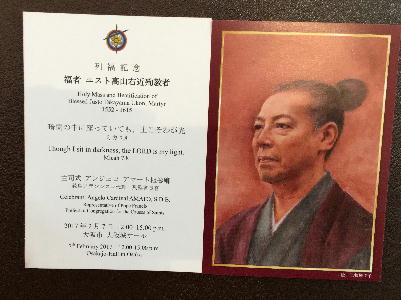 列福記念
福者 ユスト高山右近殉教者
Holy Mass and Beatification of
Blessed Justo Takayama Ukon, Martyr
1552 - 1615
暗闇の中に座っていても、主こそわが光
Though I sit in darkness, the LORD is my light.
Micah 7:8
主司式 アンジェロ アマート枢機卿
Celebrant: Angelo Cardinal AMATO, S.D.B.
Representative of Pope Francis
Prefect of Congregation for the Causes of Saints
2017年2月7日 12:00-15:00 p.m.
大阪市 大阪城ホール
7th February 2017 12:00-15:00 p.m.
Osakajo-Hall in Osaka